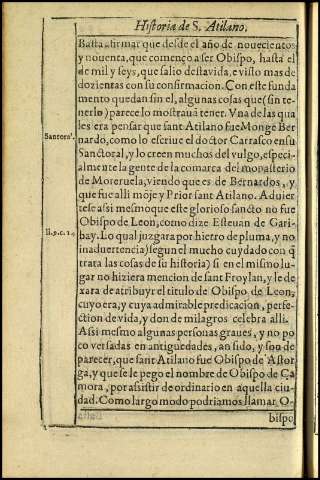 Historia de S. Atilano.
Basta afirmar que desde el año de nouecientos
y nouenta, que començo a ser Obispo, hasta el
de mil y seys, que salio desta vida, e visto mas de
dozientas con su confirmacion. Con este funda
mento quedan sin el, algunas cosas que (sin te-
nerlo) parece lo mostraua tener. Vna de las qua
les era pensar que sant Atilano fue Monge Ber
nardo, como lo escriue el doctor Carrasco en su
Santora'.
Sanctoral, y lo creen muchos del vulgo, especi-
almente la gente de la comarca del monasterio
de Moreruela, viendo que es de Bernardos, y
que fue alli moje y Prior sant Atilano. Aduier
tese assi mesmo que este glorioso sancto no fue
Obispo de Leon, como dize Esteuan de Gari-
bay. Lo qual juzgara por hierro de pluma, y no
inaduertencia) segun el mucho cuydado con q̃
trata las cosas de su historia) si en el mismo lu-
gar no hiziera mencion de sant Froylan, y le de
xara de atribuyr el titulo de Obispo de Leon,
cuyo era, y cuya admirable predicacion, perfe-
ction de vida, y don de milagros celebra alli.
Assi mesmo algunas personas graues, y no po
co versadas en antiguedades, an sido, y son de
parecer, que sant Atilano fue Obispo de Astor
ga, y que se le pego el nombre de Obispo de Ca
mora, por assistir de ordinario en aquella ciu-
dad. Como largo modo podriamos llamar O-
bispo